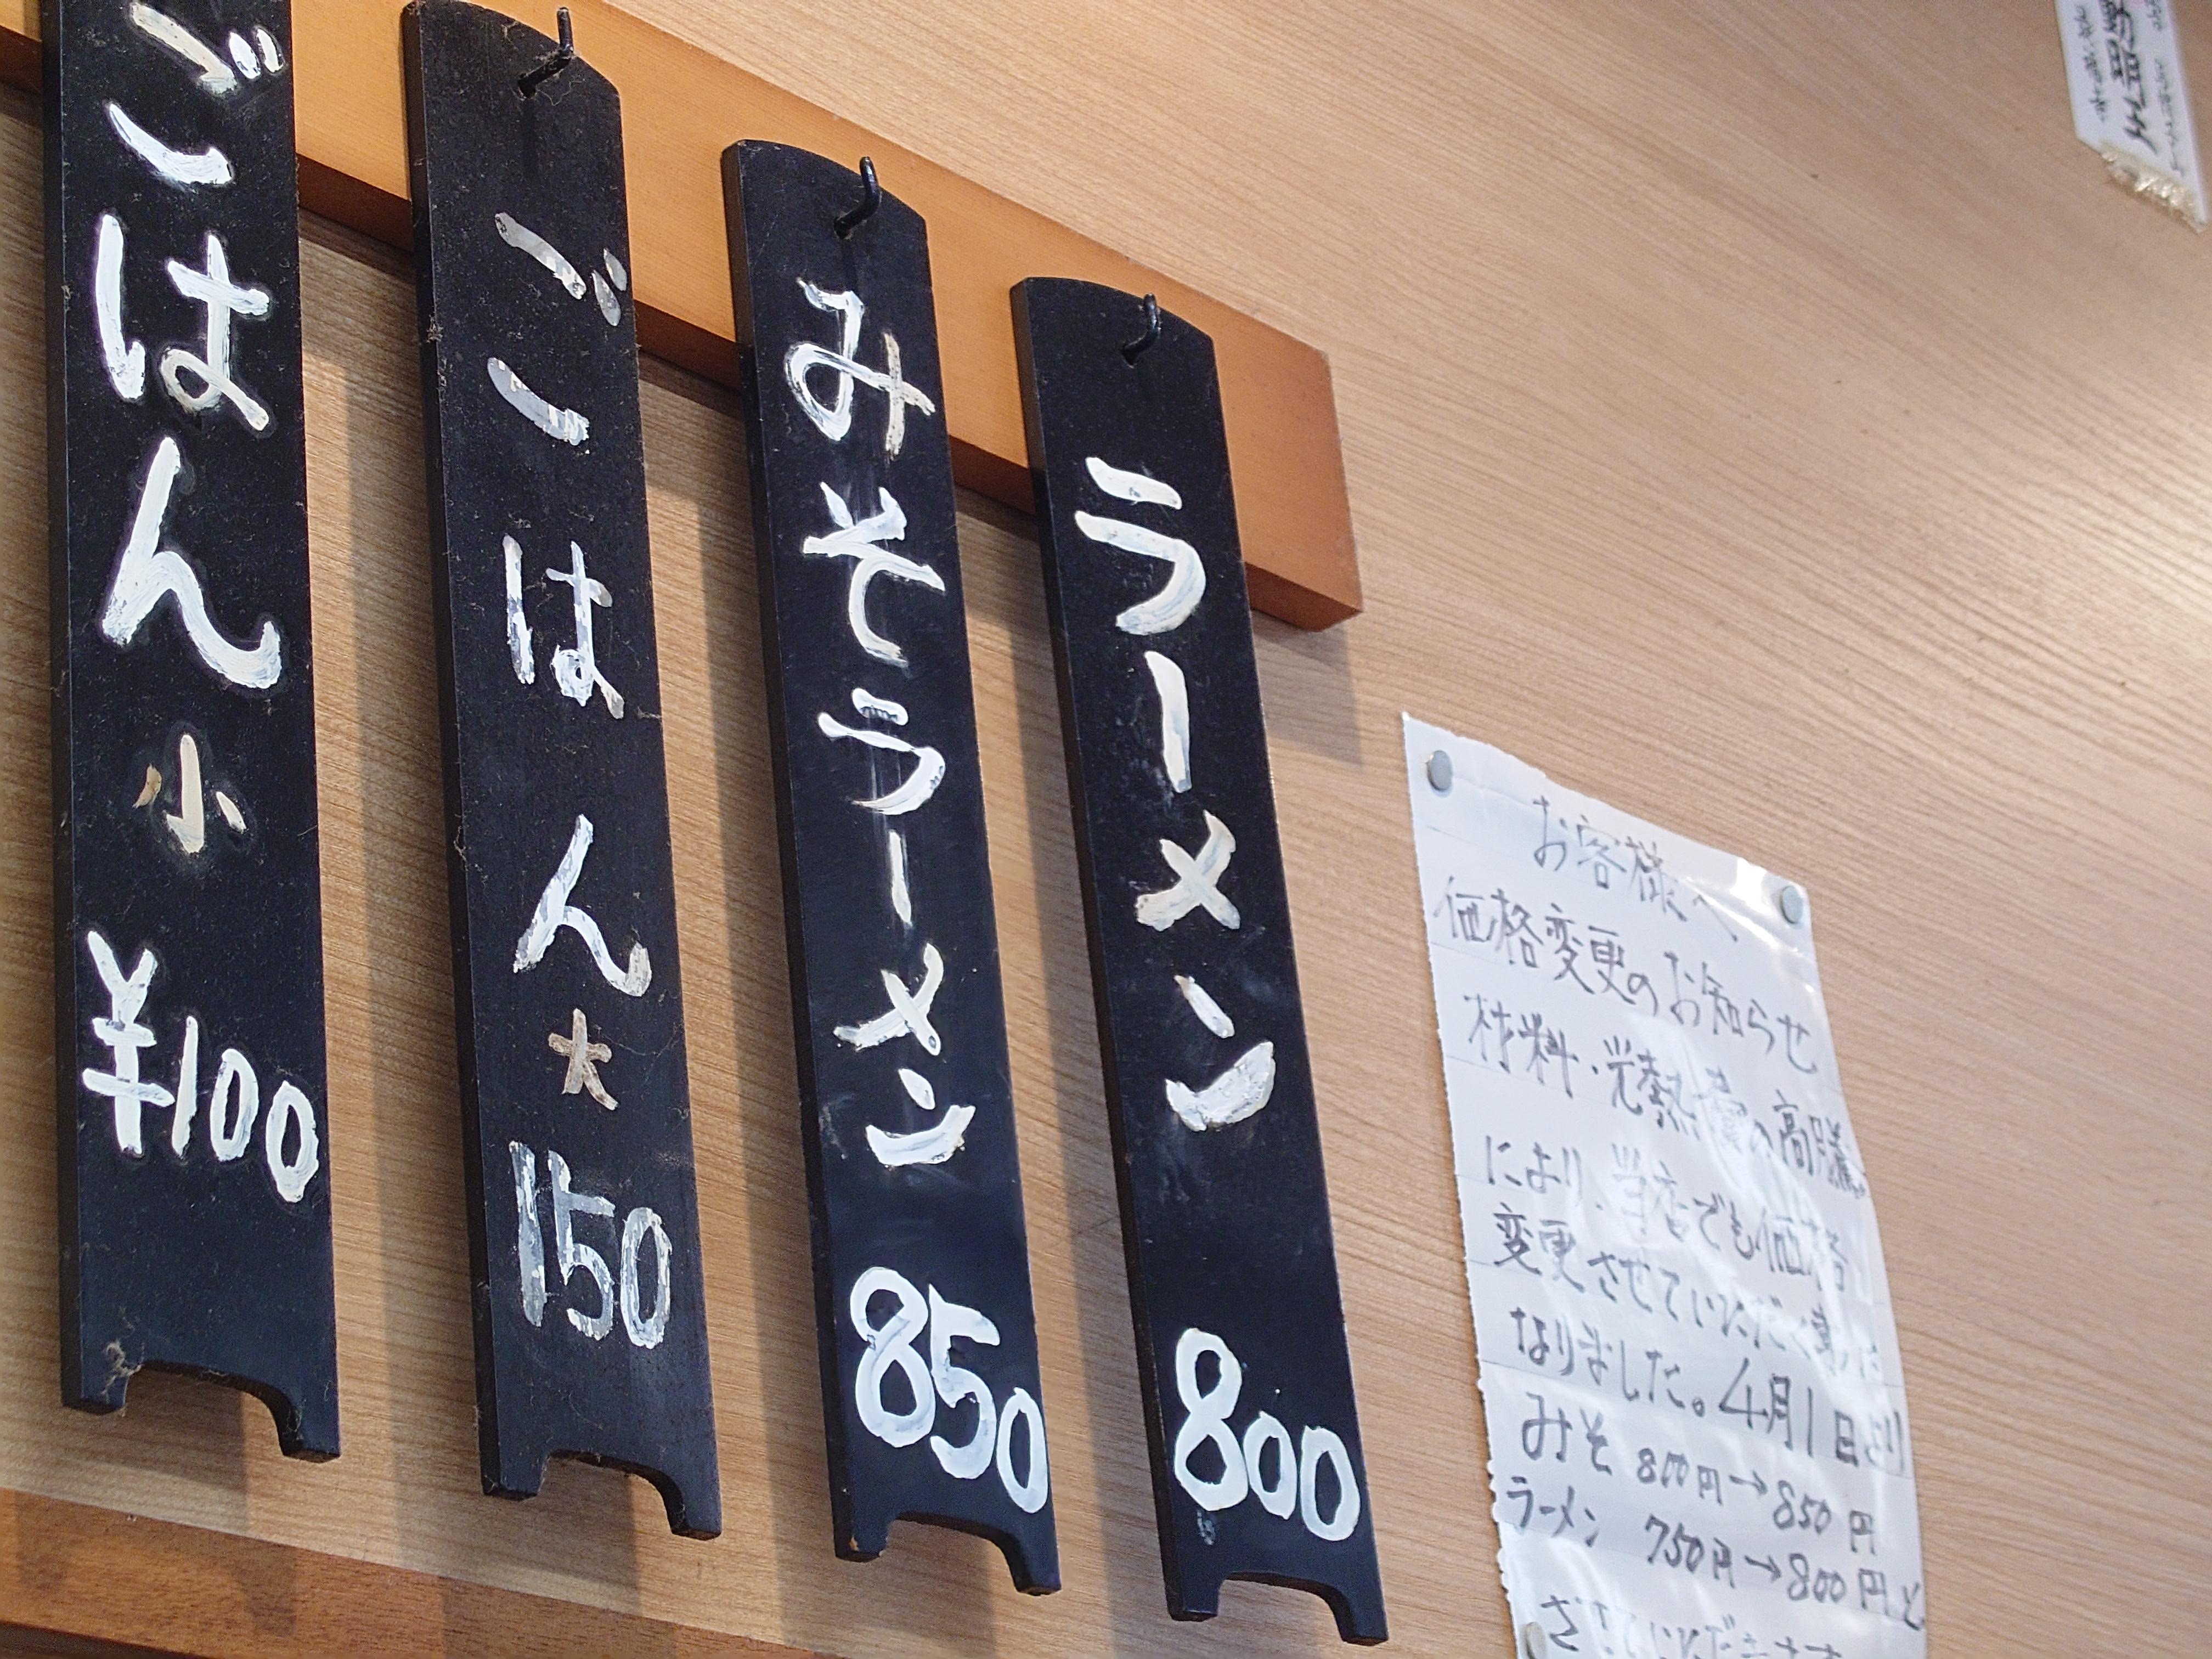 ラーメン 800
みそラーメン 850
ごはん大 150
ごはん小 ¥100
お客様へ
価格変更のお知らせ
材料・光熱費の高騰
により、当店でも価格
変更させていただく事に
なりました。4月1日より
みそ 800円→850円
ラーメン 750円→800円と
させていただきます